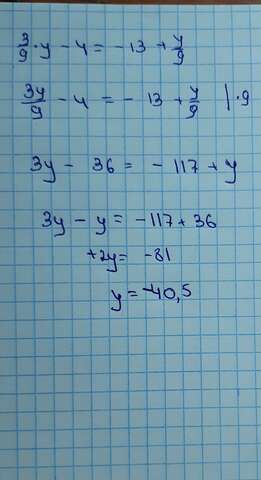 3/9 · y - 4 = - 13 + y/9
3y/9 - 4 = - 13 + y/9 | · 9
3y - 36 = - 117 + y
3y - y = -117 + 36
+2y = -81
y = -40,5